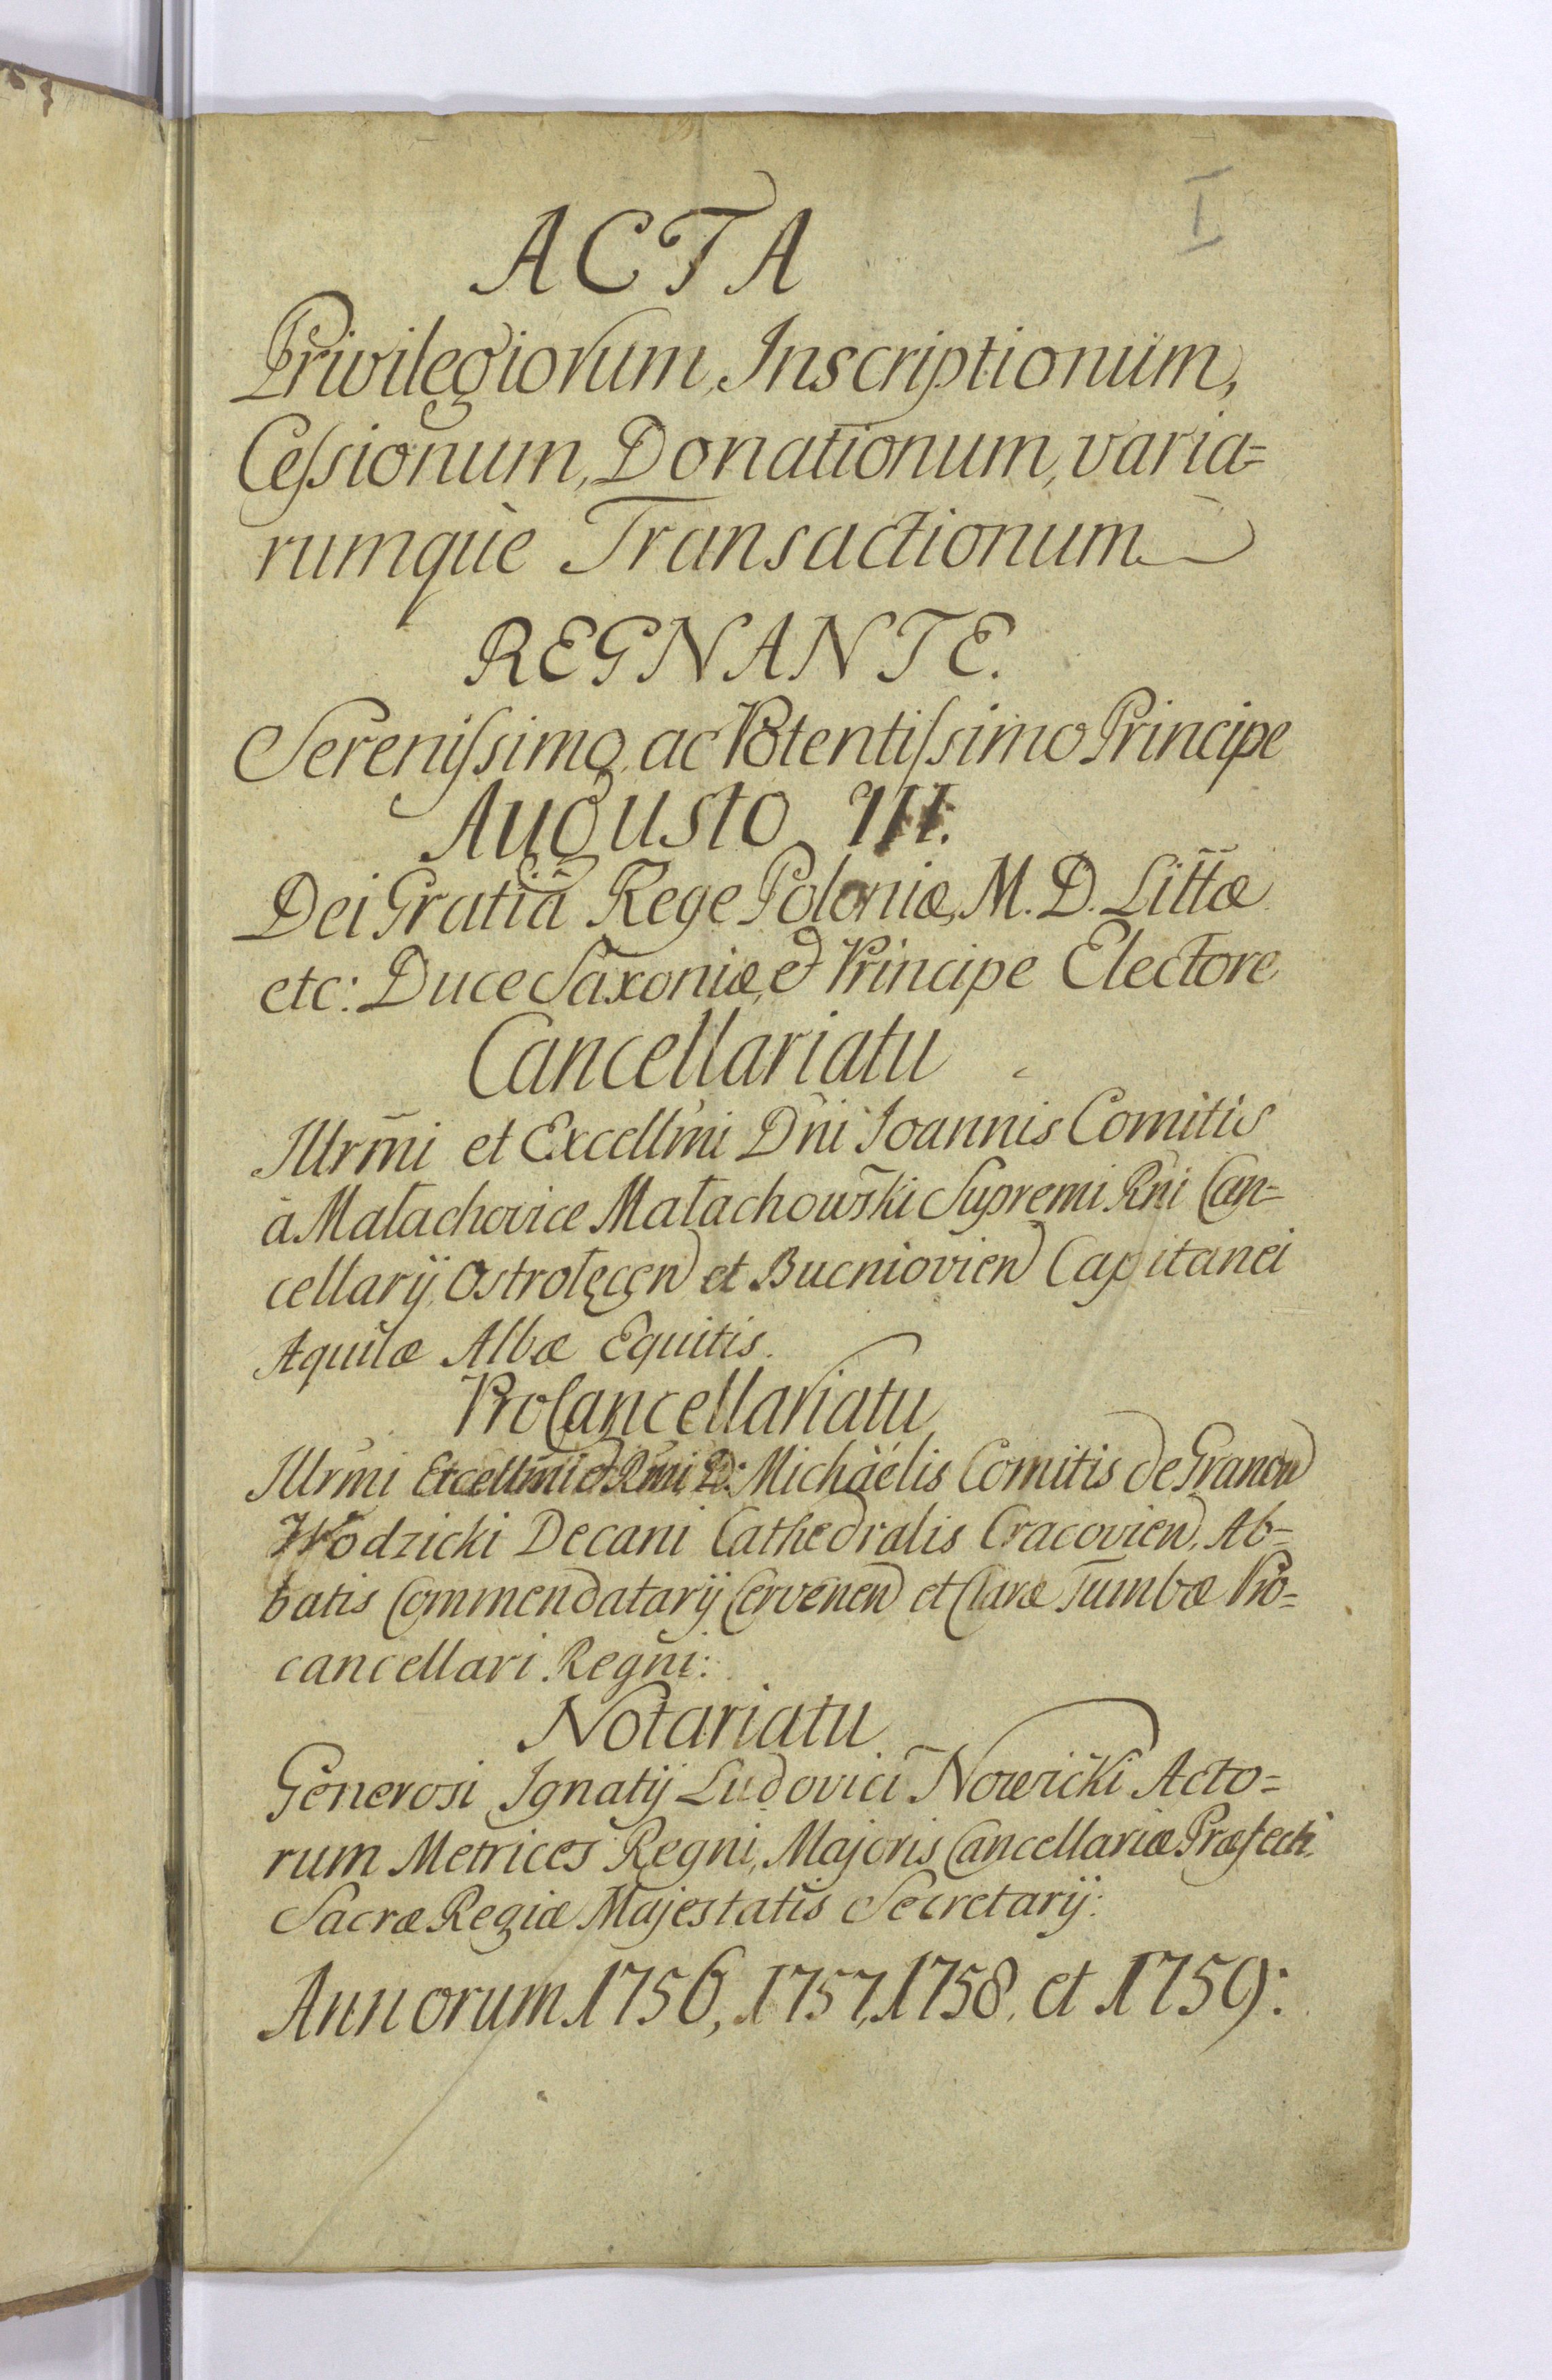 I
ACTA
Privilegiorum, Inscriptionum,
Cessionum, Donationum, varia=
rumque Transactionum
REGNANTE.
Serenissimo ac Potentissimo Principe
Augusto III.
Dei Gratiâ Rege Poloniæ, M. D. Littæ
etc: Duce Saxoniæ, et Principe Electore
Cancellariatu
Illrm̃i et Excellm̃i Dñi Joannis Comitis
à Małachovice Małachowski Supremi Rñi Can=
cellarij, Ostrołęcen et Bucniovien Capitanei
Aquilæ Albæ Equitis.
ProCancellariatu
Illrm̃i Excellm̃i et Rm̃i D: Michäélis Comitis de Granow
Wodzicki Decani Cathedralis Cracovien, Ab=
batis Commendatarij Cervenen et Claræ Tumbæ Pro=
cancellari Regni:
Notariatu
Generosi Ignatij Ludovici Nowicki Acto=
rum Metrices Regni, Majoris Cancellariæ Præfecti.
Sacræ Regiæ Majestatis Secretarij:
Annorum 1756, 1757, 1758. et 1759: